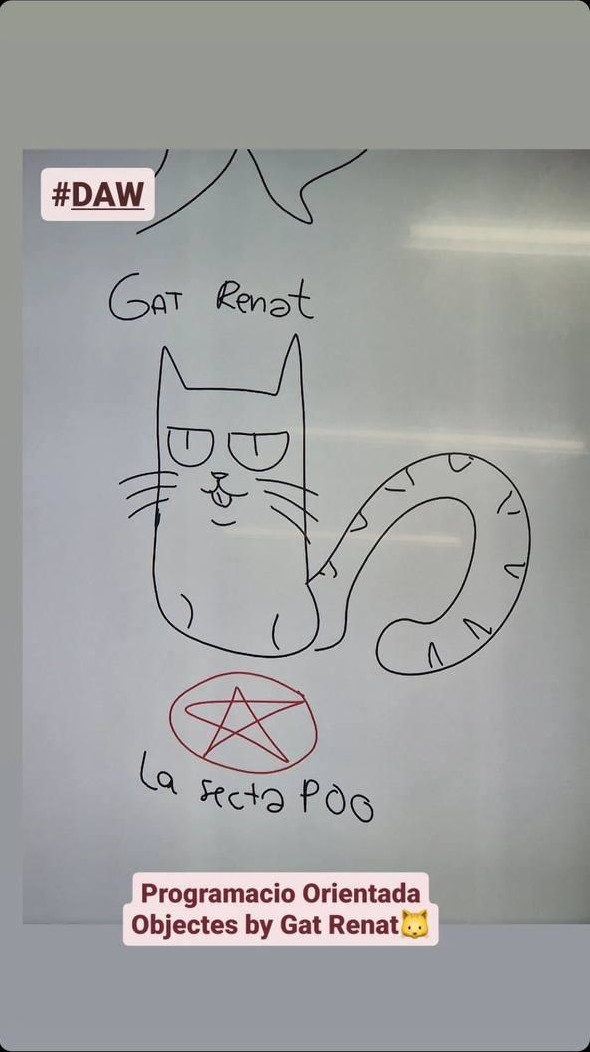 #DAW
GAT Renat
La secta POO
Programacio Orientada
Objectes by Gat Renat🐱